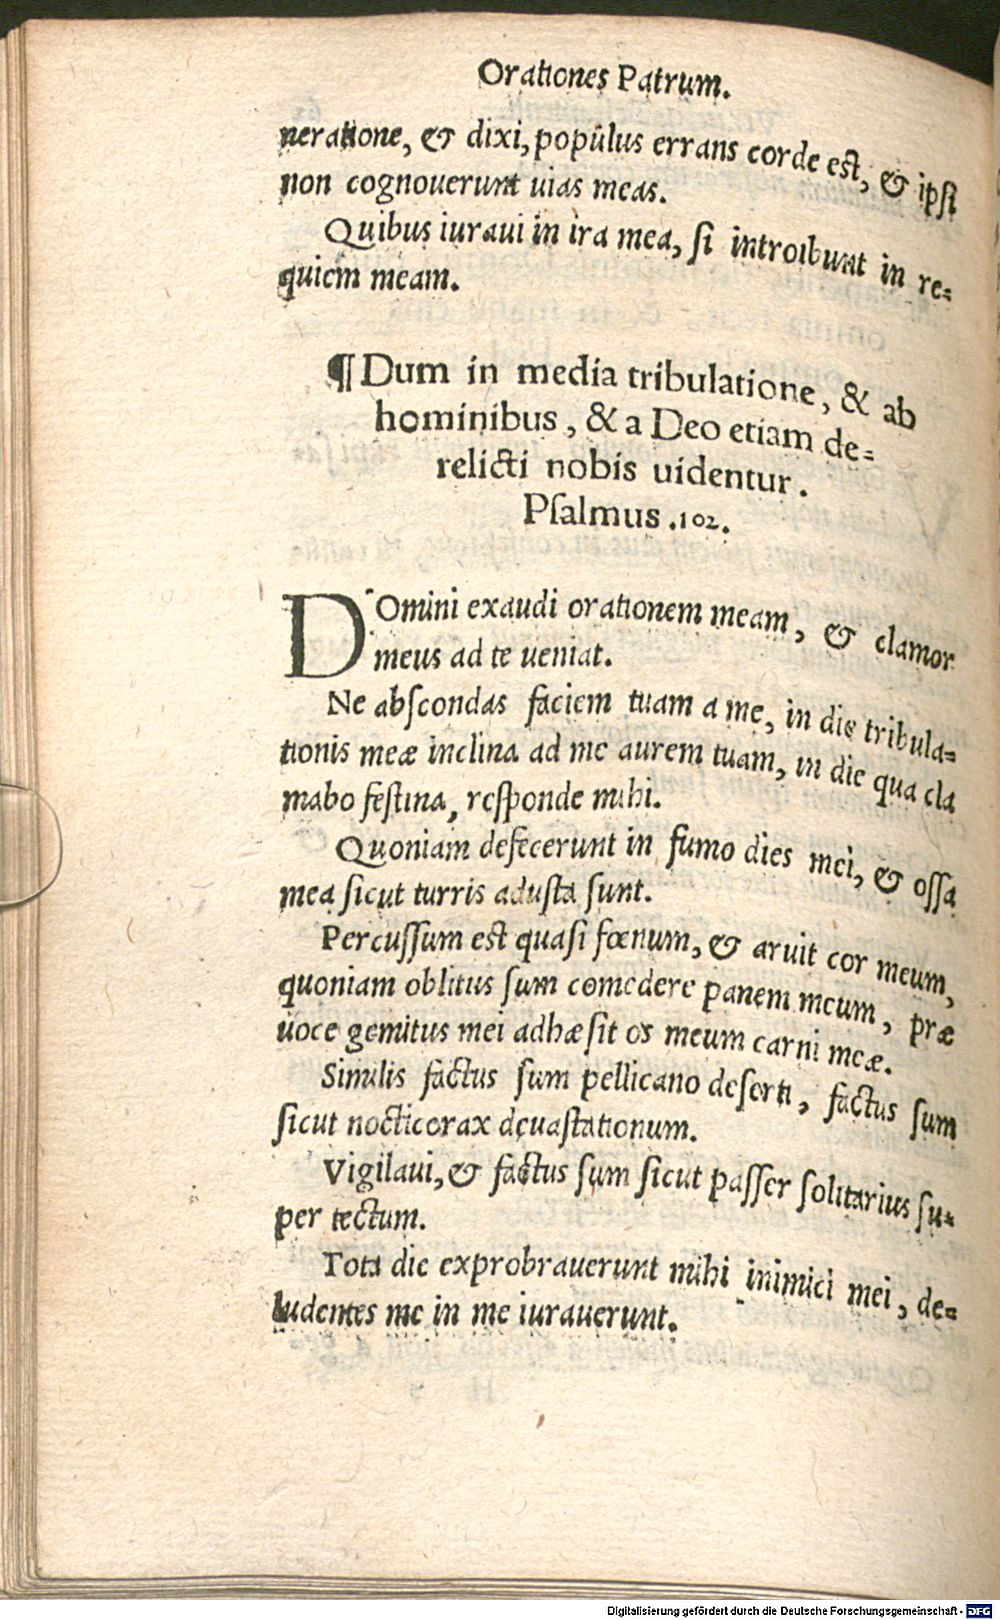 Orationes Patrum.
neratione, & dixi, populus errans corde est, & ipsi
non cognouerunt uias meas.
Quibus iuraui in ira mea, si introibunt in re=
quiem meam.
¶ Dum in media tribulatione, & ab
hominibus, & a Deo etiam de=
relicti nobis uidentur.
Psalmus .102.
DOmini exaudi orationem meam, & clamor
meus ad te ueniat.
Ne abscondas faciem tuam a me, in die tribula=
tionis meæ inclina ad me aurem tuam, in die qua cla
mabo festina, responde mihi.
Quoniam defecerunt in fumo dies mei, & ossa
mea sicut turris adusta sunt.
Percussum est quasi fœnum, & aruit cor meum,
quoniam oblitus sum comedere panem meum, præ
uoce gemitus mei adhæsit os meum carni meæ.
Similis factus sum pellicano deserti, factus sum
sicut nocticorax deuastationum.
Vigilaui, & factus sum sicut passer solitarius su=
per tectum.
Tota die exprobrauerunt mihi inimici mei, de=
ludentes me in me iurauerunt.
Digitalisierung gefördert durch die Deutsche Forschungsgemeinschaft - DFG